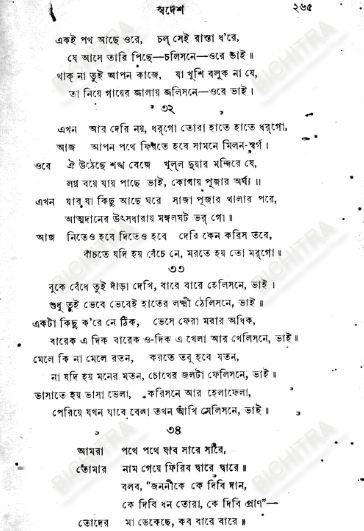 স্বদেশ ২৬৫
একই পথ আছে ওরে, চল্ সেই রাস্তা ধ'রে,
যে আসে তারি পিছে—চলিসনে—ওরে ভাই॥
থাক্ না তুই আপন কাজে, যা খুশি বলুক না যে,
তা নিয়ে গায়ের জ্বালায় জ্বলিসনে—ওরে ভাই॥
৩২
এখন আর দেরি নয়, ধর্‌গো তোরা হাতে হাতে ধর্‌গো,
আজ আপন পথে ফিরতে হবে সামনে মিলন-স্বর্গ।
ওরে ঐ উঠেছে শঙ্খ বেজে খুলল দুয়ার মন্দিরে যে,
লগ্ন বয়ে যায় পাছে ভাই, কোথায় পূজার অর্ঘ্য॥
এখন যার যা কিছু আছে ঘরে সাজা পূজার থালার পরে,
আত্মদানের উৎসধারায় মঙ্গলঘট ভর্ গো।
আজ নিতেও হবে দিতেও হবে দেরি কেন করিস তবে,
বাঁচতে যদি হয় বেঁচে নে, মরতে হয় তো মর্‌গো॥
৩৩
বুকে বেঁধে তুই দাঁড়া দেখি, বারে বারে হেলিসনে, ভাই।
শুধু তুই ভেবে ভেবেই হাতের লক্ষ্মী ঠেলিসনে, ভাই॥
একটা কিছু ক'রে নে ঠিক, ভেসে ফেরা মরার অধিক,
বারেক এ দিক বারেক ও-দিক এ খেলা আর খেলিসনে, ভাই॥
মেলে কি না মেলে রতন, করতে তবু হবে যতন,
না যদি হয় মনের মতন, চোখের জলটা ফেলিসনে, ভাই॥
ভাসাতে হয় ভাসা ভেলা, করিসনে আর হেলাফেলা,
পেরিয়ে যখন যাবে বেলা তখন আঁখি মেলিসনে, ভাই॥
৩৪
আমরা পথে পথে যাব সারে সারে,
তোমার নাম গেয়ে ফিরিব দ্বারে দ্বারে॥
বলব, "জননীকে কে দিবি দান,
কে দিবি ধন তোরা, কে দিবি প্রাণ"—
তোদের মা ডেকেছে, কব বারে বারে॥